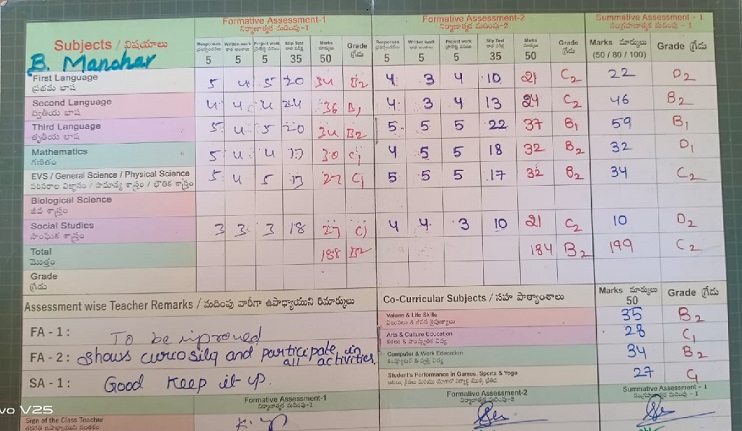 Formative Assessment-1 Formative Assessment-2 Summative Assessment - 1
నిర్మాణాత్మక మదింపు-1 నిర్మాణాత్మక మదింపు-2 సంగ్రహణాత్మక మదింపు - 1
Subjects / విషయాలు Responses Written work Project work Slip Test Marks Grade Responses Written work Project work Slip Test Marks Grade Marks మార్కులు Grade గ్రేడు
B. Manohar 5 5 5 35 50 గ్రేడు 5 5 5 35 50 గ్రేడు (50 / 80 / 100)
First Language 5 4 5 20 34 B2 4 3 4 10 21 C2 22 D2
ప్రథమ భాష
Second Language 4 4 4 24 36 B1 4 3 4 13 24 C2 46 B2
ద్వితీయ భాష
Third Language 5 4 5 20 34 B2 5 5 5 22 37 B1 59 B1
తృతీయ భాష
Mathematics 5 4 4 17 30 C1 4 5 5 18 32 B2 32 D1
గణితం
EVS / General Science / Physical Science 5 4 5 13 27 C1 5 5 5 17 32 B2 34 C2
పరిసరాల విజ్ఞానం / సామాన్య శాస్త్రం / భౌతిక శాస్త్రం
Biological Science
జీవ శాస్త్రం
Social Studies 3 3 3 18 27 C1 4 4 3 10 21 C2 10 D2
సాంఘిక శాస్త్రం
Total 188 B2 184 B2 199 C2
మొత్తం
Grade
గ్రేడు
Assessment wise Teacher Remarks / మదింపు వారీగా ఉపాధ్యాయుని రిమార్కులు Co-Curricular Subjects / సహ పాఠ్యాంశాలు Marks మార్కులు 50 Grade గ్రేడు
FA - 1 : To be improved
FA - 2 : Shows curiosity and participate in all activities.
SA - 1 : Good Keep it up.
Values & Life Skills 35 B2
Arts & Culture Education 28 C1
Computer & Work Education 34 B2
Student's Performance in Games, Sports & Yoga 27 C1
Formative Assessment-1 Formative Assessment-2 Summative Assessment - 1
నిర్మాణాత్మక మదింపు-1 నిర్మాణాత్మక మదింపు-2 సంగ్రహణాత్మక మదింపు - 1
Sign of the Class Teacher
vo V25